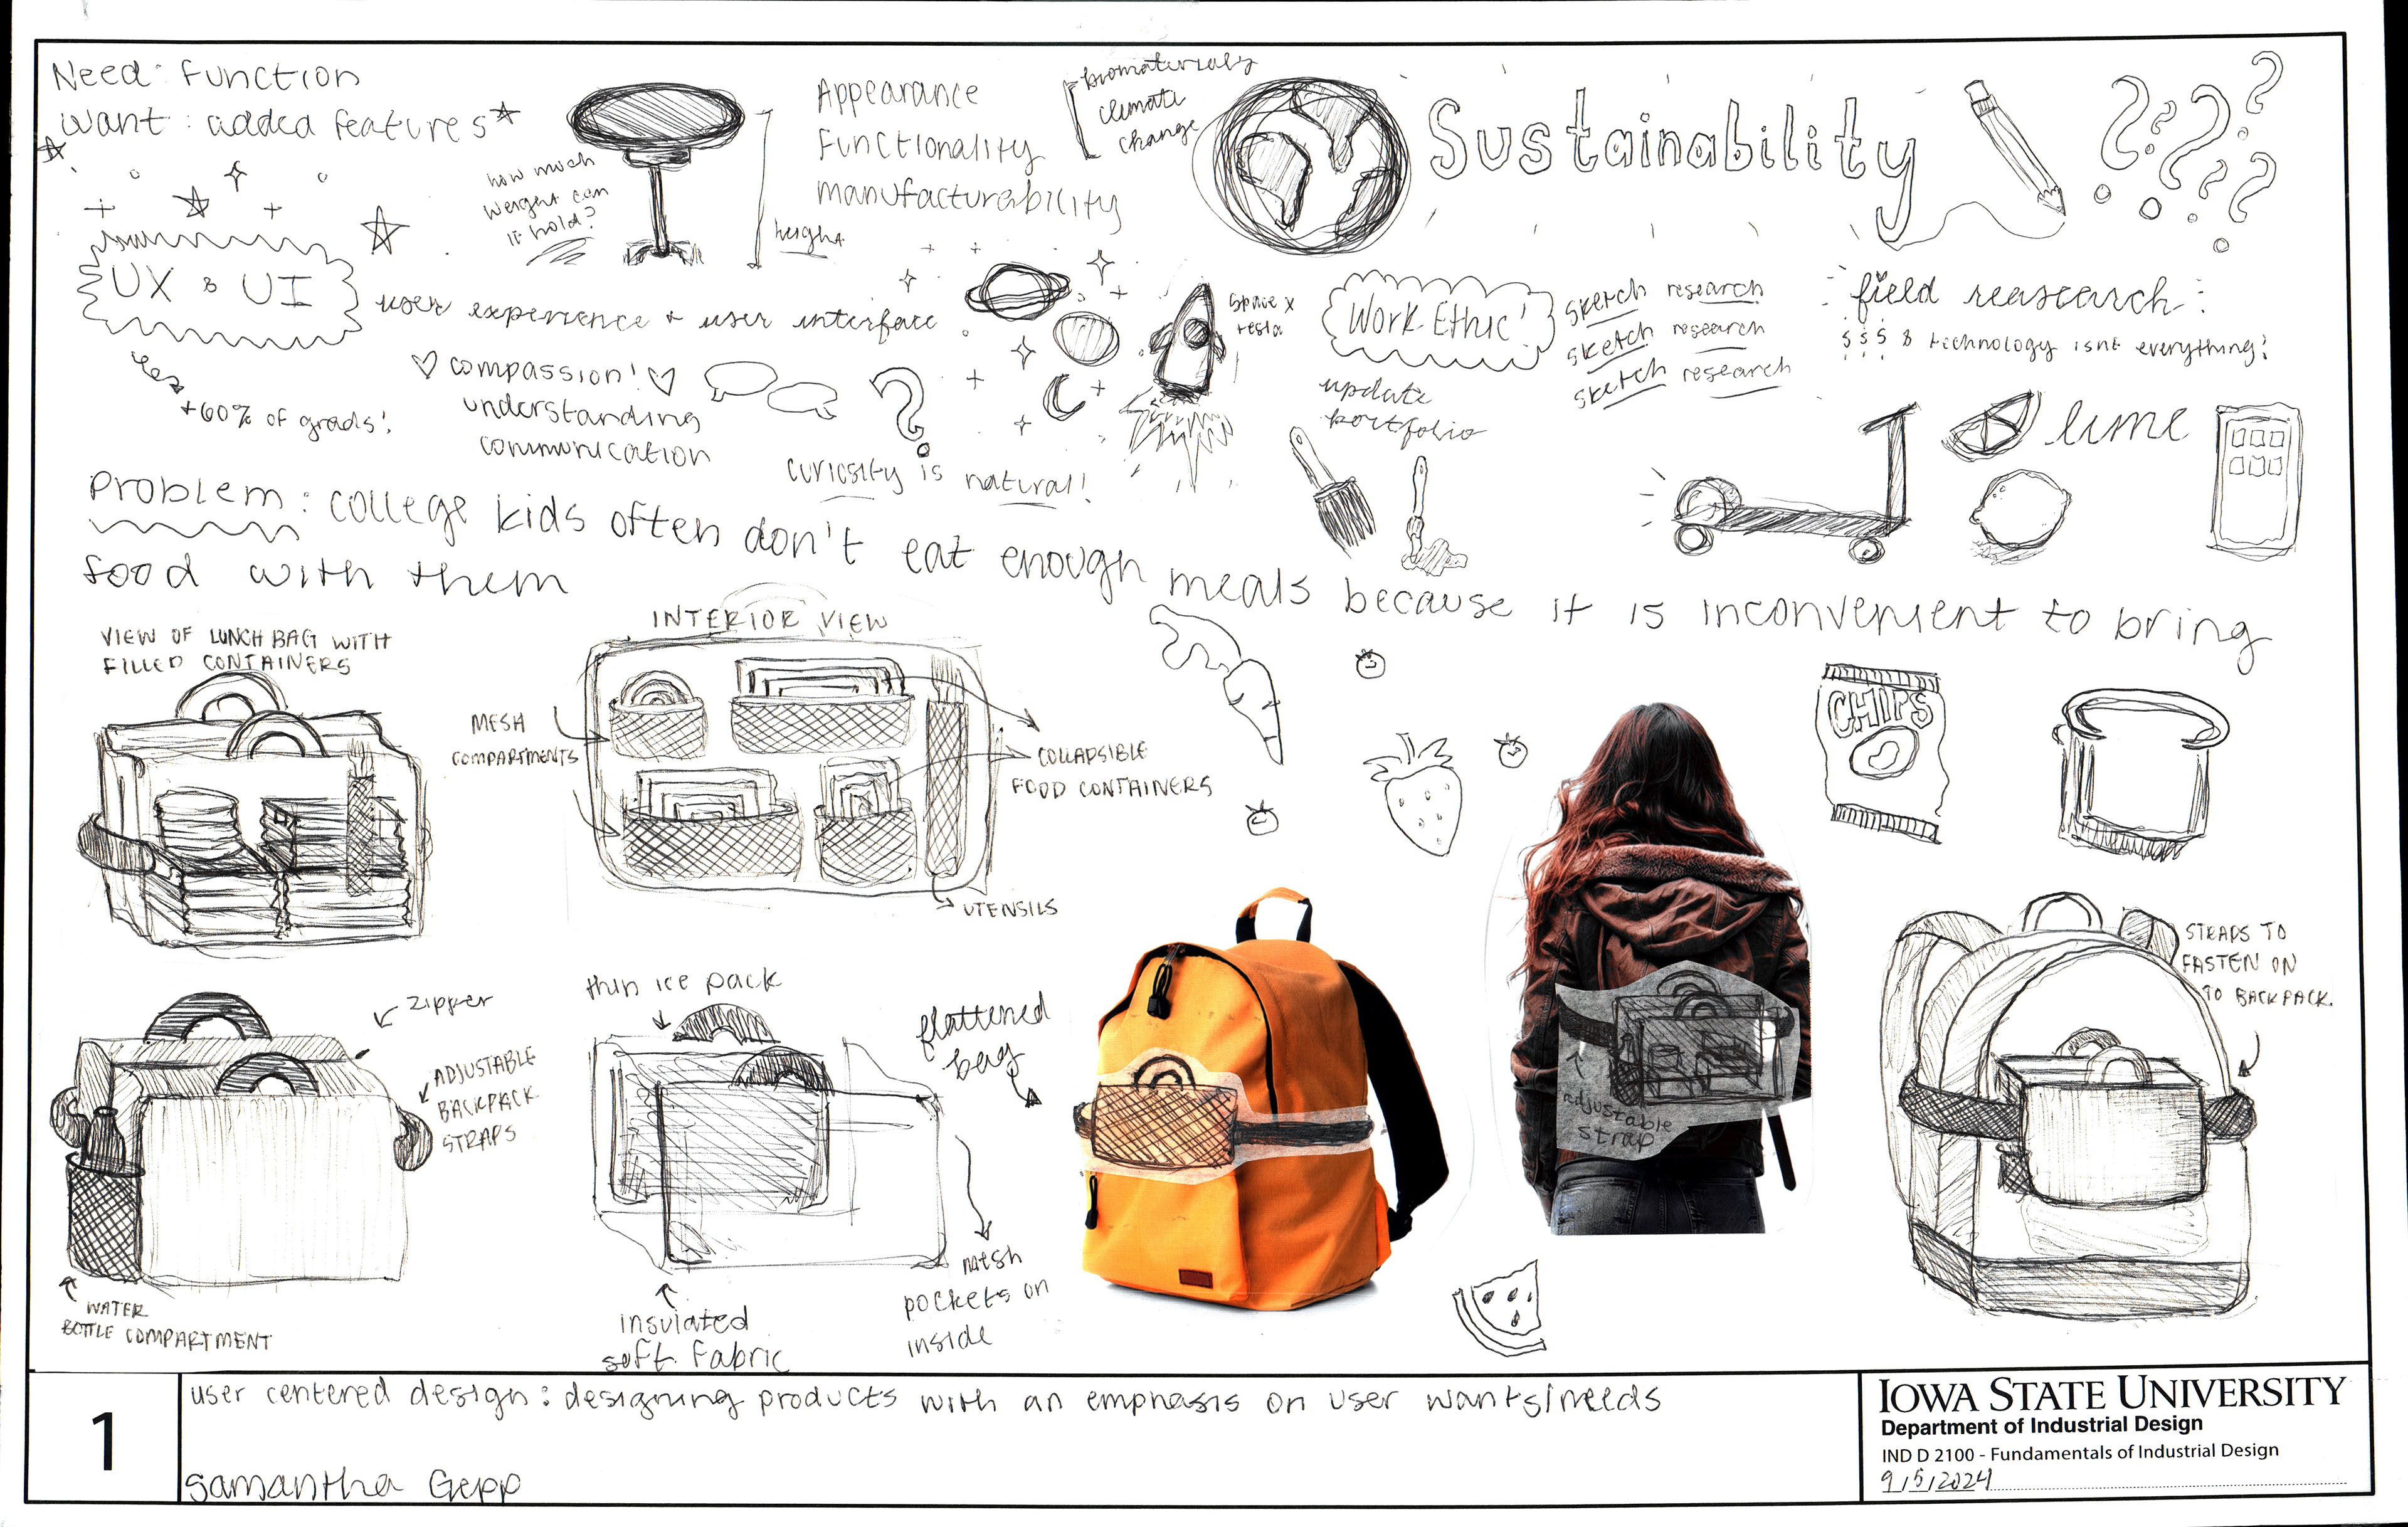 Need: function
want: added features
how much
weight can
it hold?
height
Appearance
Functionality
manufacturability
biomaterials
climate
change
Sustainability
UX & UI
user experience & user interface
yes
+60% of grads!
compassion!
understanding
communication
curiosity is natural!
Space X
tesla
Work Ethic!
sketch research
sketch research
sketch research
update
portfolio
field reasearch:
$$$ & technology isnt everything!
lime
Problem: college kids often don't eat enough meals because it is inconvenient to bring
food with them
VIEW OF LUNCH BAG WITH
FILLED CONTAINERS
INTERIOR VIEW
MESH
COMPARTMENTS
COLLAPSIBLE
FOOD CONTAINERS
UTENSILS
CHIPS
zipper
ADJUSTABLE
BACKPACK
STRAPS
WATER
BOTTLE COMPARTMENT
thin ice pack
insulated
soft fabric
mesh
pockets on
inside
flattened
bag
adjustable
strap
STRAPS TO
FASTEN ON
TO BACKPACK.
1
user centered design: designing products with an emphasis on user wants/needs
Samantha Gepp
IOWA STATE UNIVERSITY
Department of Industrial Design
IND D 2100 - Fundamentals of Industrial Design
9/5/2024